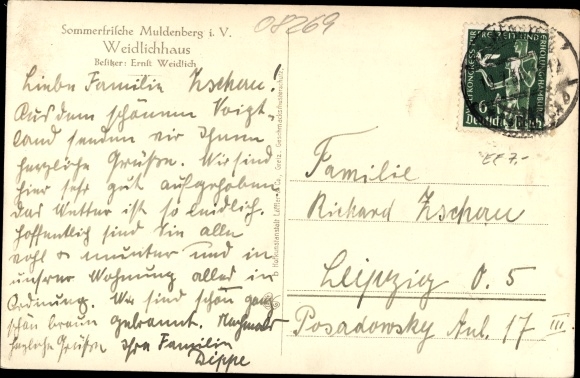 Sommerfrische Muldenberg i. V.
Weidlichhaus
Besitzer: Ernst Weidlich
08269
Liebe Familie Zschau!
Aus dem schönen Voigt-
land senden wir Ihnen
herzliche Grüße. Wir sind
hier sehr gut aufgehoben
das Wetter ist so leidlich.
Hoffentlich sind Sie alle
wohl & munter und in
unserer Wohnung alles in
Ordnung. Wir sind schon ganz
schön braun gebrannt. Nochmals
herzliche Grüße Ihre Familie
Dippe
KONGRESS FÜR FREIZEIT UND ERHOLUNG HAMBURG
6
Deutsches Reich
EF 7.-
Familie
Richard Zschau
Leipzig O. 5
Posadowsky Anl. 17 III.